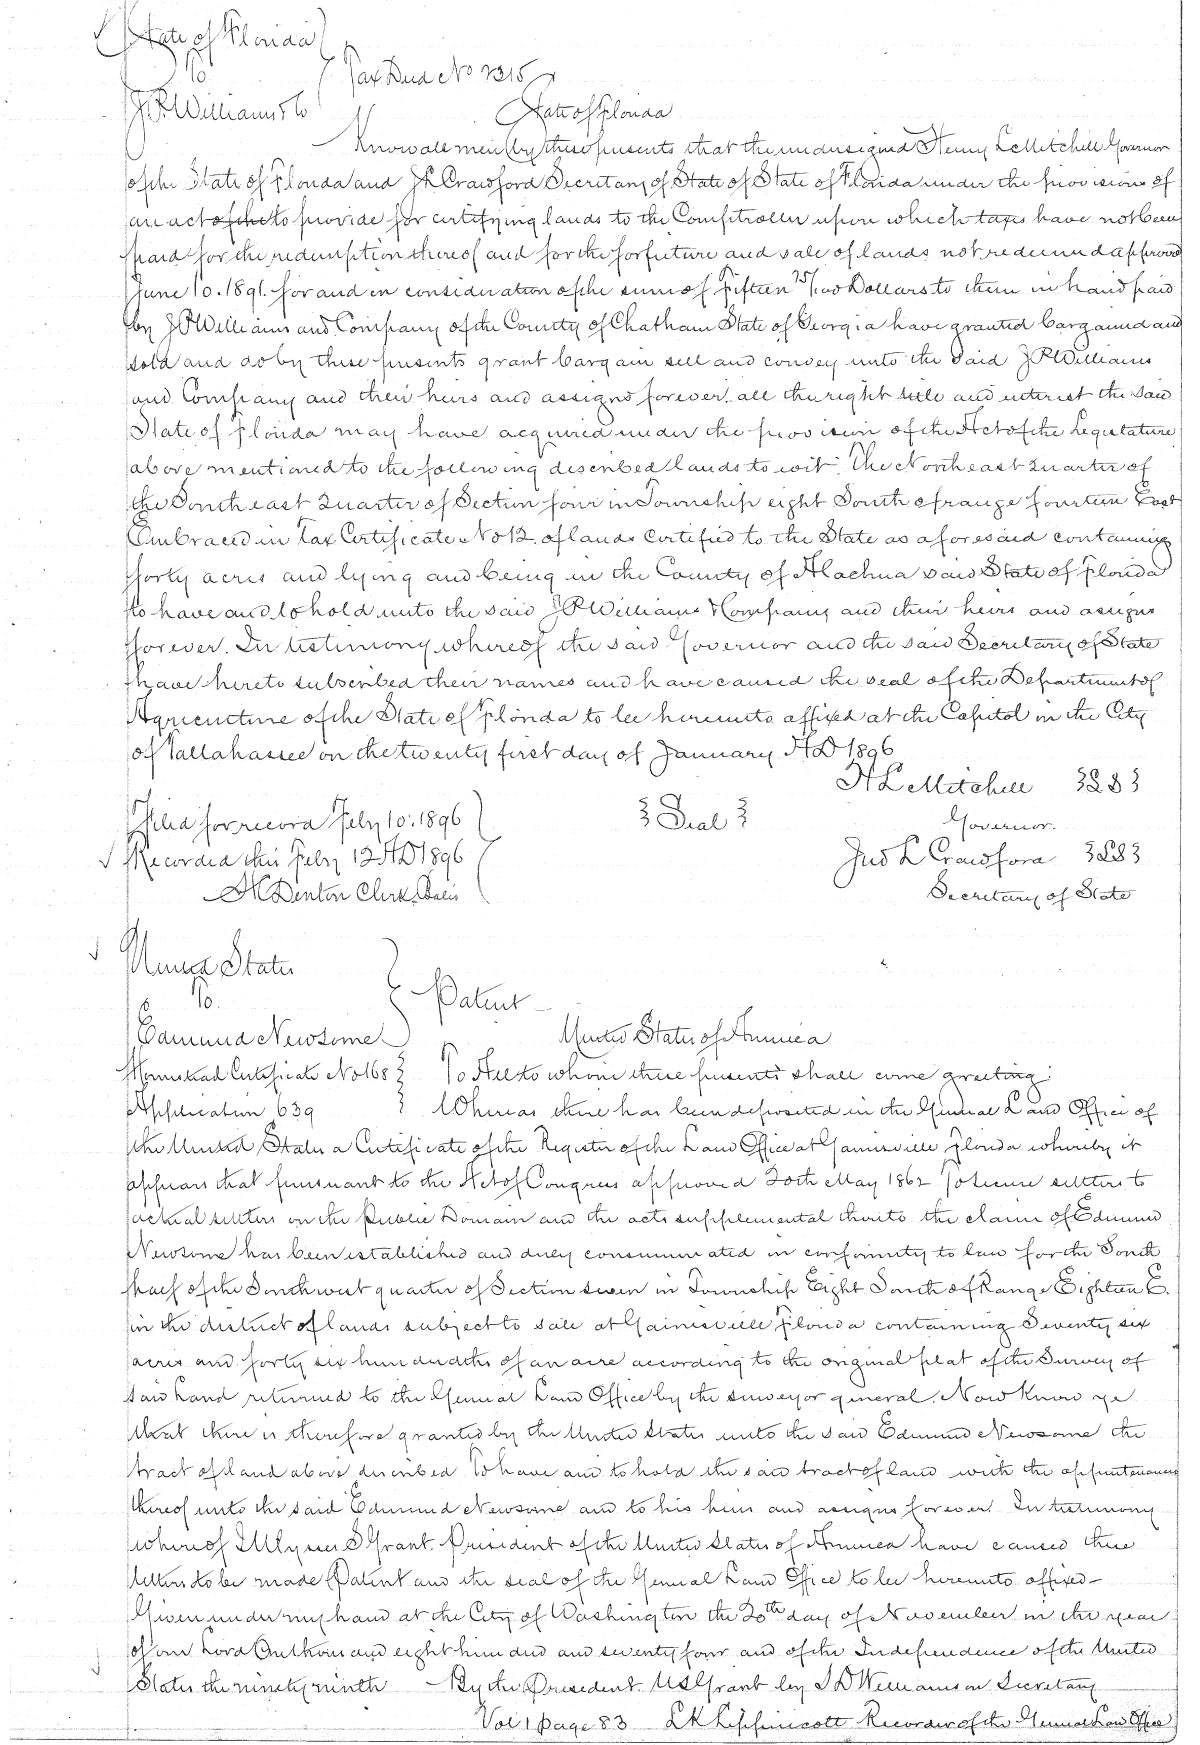 State of Florida
To
Tax Deed No 2315
J.P. Williams & Co
State of Florida
Know all men by these presents that the undersigned Henry L Mitchell Governor
of the State of Florida and JL Crawford Secretary of State of State of Florida under the provisions of
an act of the to provide for certifying lands to the Comptroller upon which taxes have not been
paid for the redemption thereof and for the forfeiture and sale of lands not redeemed approved
June 10. 1891. for and in consideration of the sum of Fifteen 75/100 Dollars to them in hand paid
by JP Williams and Company of the County of Chatham State of Georgia have granted bargained and
sold and do by these presents grant bargain sell and convey unto the said JP Williams
and Company and their heirs and assigns forever. all the right title and interest the said
State of Florida may have acquired under the provision of the Act of the Legislature
above mentioned to the following described lands to wit: The North east quarter of
the South east quarter of Section four in Township eight South of range fourteen East
Embraced in Tax Certificate No 12. of lands certified to the State as aforesaid containing
forty acres and lying and being in the County of Alachua said State of Florida
to have and to hold unto the said JP Williams & Company and their heirs and assigns
forever. In testimony whereof the said Governor and the said Secretary of State
have hereto subscribed their names and have caused the seal of the Department of
Agriculture of the State of Florida to be hereunto affixed at the Capitol in the City
of Tallahassee on the twenty first day of January AD 1896
H L Mitchell {LS}
Filed for record Feby 10. 1896 {Seal} Governor.
Recorded this Feby 12 AD 1896 Jno L Crawford {LS}
Denton Clerk Secretary of State
United States
To
Patent
Edmund Newsome United States of America
Homestead Certificate No 168 To All to whom these presents shall come greeting:
Application 639 Whereas there has been deposited in the General Land Office of
the United States a Certificate of the Register of the Land Office at Gainesville Florida whereby it
appears that pursuant to the Act of Congress approved 20th May 1862 To secure settlers to
actual settlers on the Public Domain and the acts supplemental thereto the claim of Edmund
Newsome has been established and duly consummated in conformity to law for the South
half of the South west quarter of Section seven in Township Eight South of Range Eighteen E.
in the district of lands subject to sale at Gainesville Florida containing Seventy six
acres and forty six hundredths of an acre according to the original plat of the Survey of
said Land returned to the General Land Office by the surveyor general. Now know ye
that there is therefore granted by the United States unto the said Edmund Newsome the
tract of land above described To have and to hold the said tract of land with the appurtenances
thereof unto the said Edmund Newsome and to his heirs and assigns forever In testimony
whereof I Ulysses S Grant. President of the United States of America have caused these
letters to be made Patent and the seal of the General Land Office to be hereunto affixed-
Given under my hand at the City of Washington the 20th day of November in the year
of our Lord One thousand eight hundred and seventy four and of the Independence of the United
States the ninety ninth - By the President US Grant by S D Williamson Secretary
Vol 1 page 83 LK Lippincott Recorder of the General Land Office